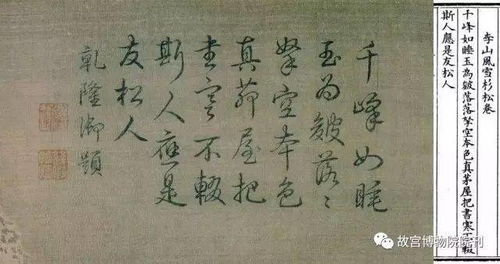 李山風雪杉松卷
千峰如睡玉為皴落落拏空本色真茅屋把書寒不輟
斯人應是友松人
千峰如睡
玉為皴落〻
拏空本色
真茆屋把
書寒不輟
斯人應是
友松人
乾隆御題
故宫博物院院刊